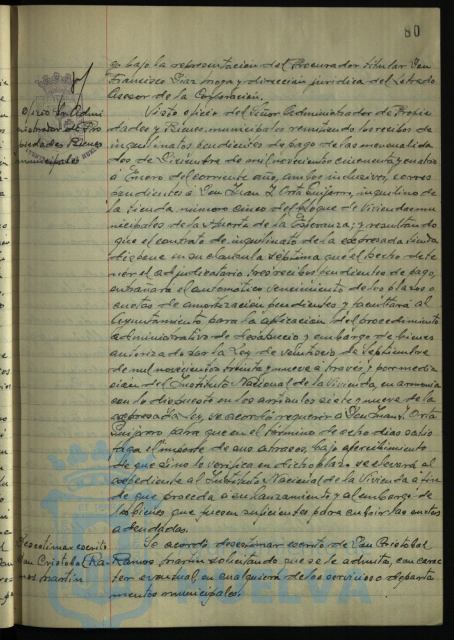 80
go bajo la representación del Procurador titular Don
Francisco Diaz y dirección jurídica del Letrado
Asesor de la Corporación.
Oficio Sr. Admi
nistrador de Pro
piedades y Bienes
municipales
Visto oficio del Señor Administrador de Propie
dades y Bienes municipales remitiendo los recibos de
inquilinatos pendientes de pago de las mensualida
des de Diciembre de mil novecientos cincuenta y cuatro
a Enero del corriente año, ambos inclusives, corres
pondientes a Don Juan J. Orta Guijarro, inquilino de
la tienda número cinco del bloque de Viviendas mu
nicipales de la Huerta de la Esperanza; y resultando
que el contrato de inquilinato de la expresada tienda
dispone en su clausula septima que el hecho de te
ner el adjudicatario tres recibos pendientes de pago,
entrañará el automático vencimiento de los plazos o
cuotas de amortización pendientes y facultará al
Ayuntamiento para la aplicación del procedimiento
administrativo de desahucio y embargo de bienes
autorizado por la Ley de veintitres de Septiembre
de mil novecientos treinta y nueve a través y por media
ción del Instituto Nacional de la Vivienda, en armonia
con lo dispuesto en los artículos siete y nueve de la
expresada Ley, se acordó requerir a Don Juan J. Orta
Guijarro para que en el término de ocho dias satis
faga el importe de sus atrasos, bajo apercibimiento
de que si no lo verifica en dicho plazo se elevará el
expediente al Instituto Nacional de la Vivienda a fin
de que proceda a su lanzamiento y al embargo de
los bienes que fuesen suficientes para cubrir las cuotas
adeudadas.
Desestimar escrito
Don Cristobal Ra
mos Martin
Se acordó desestimar escrito de Don Cristobal
Ramos Martin solicitando que se le admita, con carac
ter eventual, en cualquiera de los servicios o departa
mentos municipales.
HUELVA